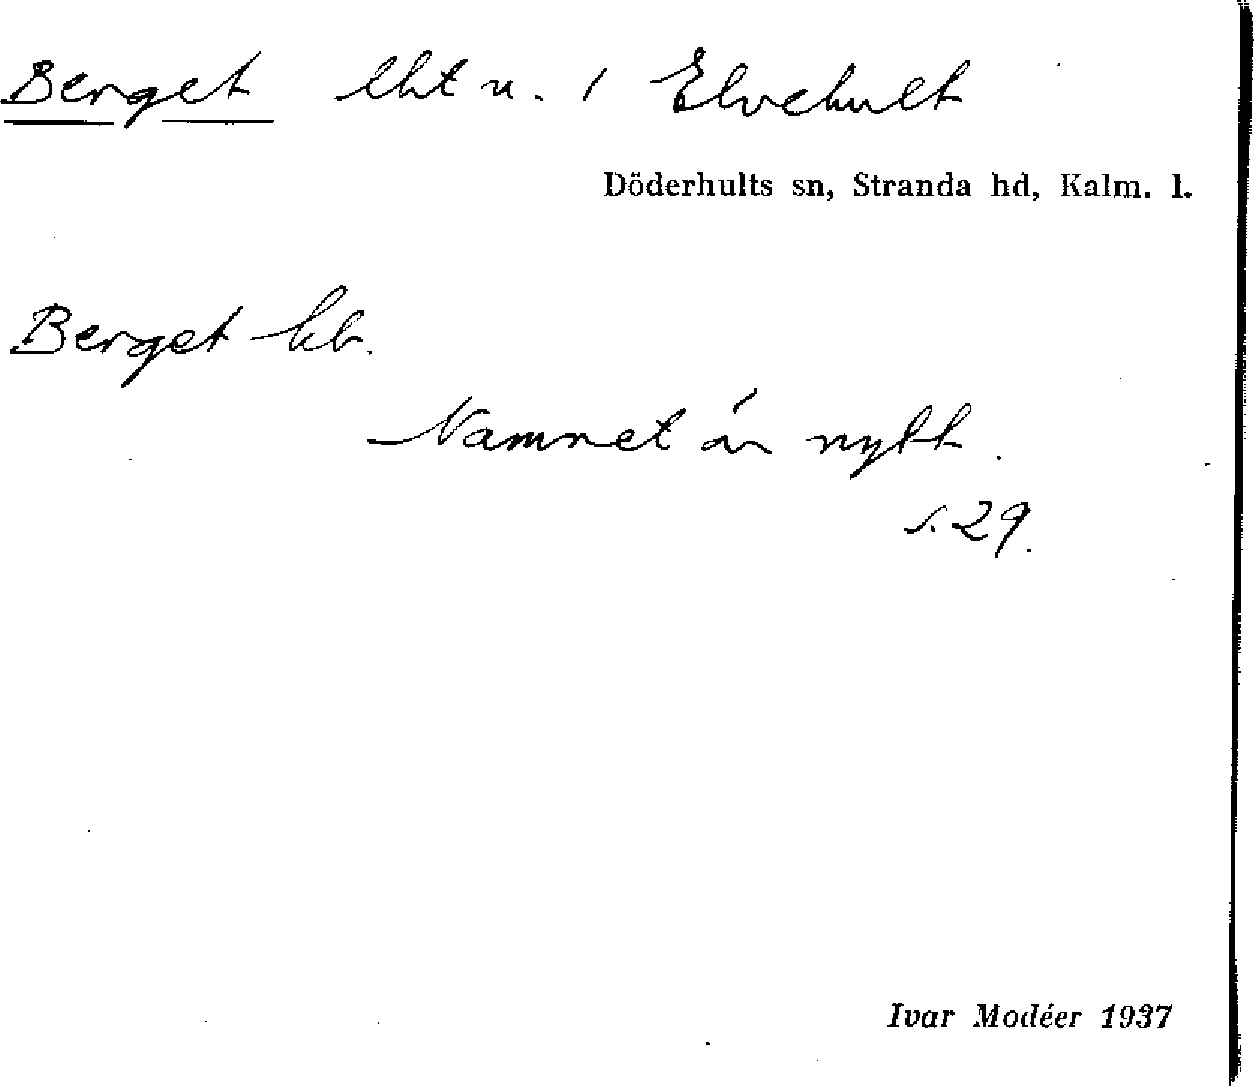 Berget lht u. / Elvehult
Döderhults sn, Stranda hd, Kalm. l.
Berget kb.
Namnet är nytt.
s. 29.
Ivar Modéer 1937